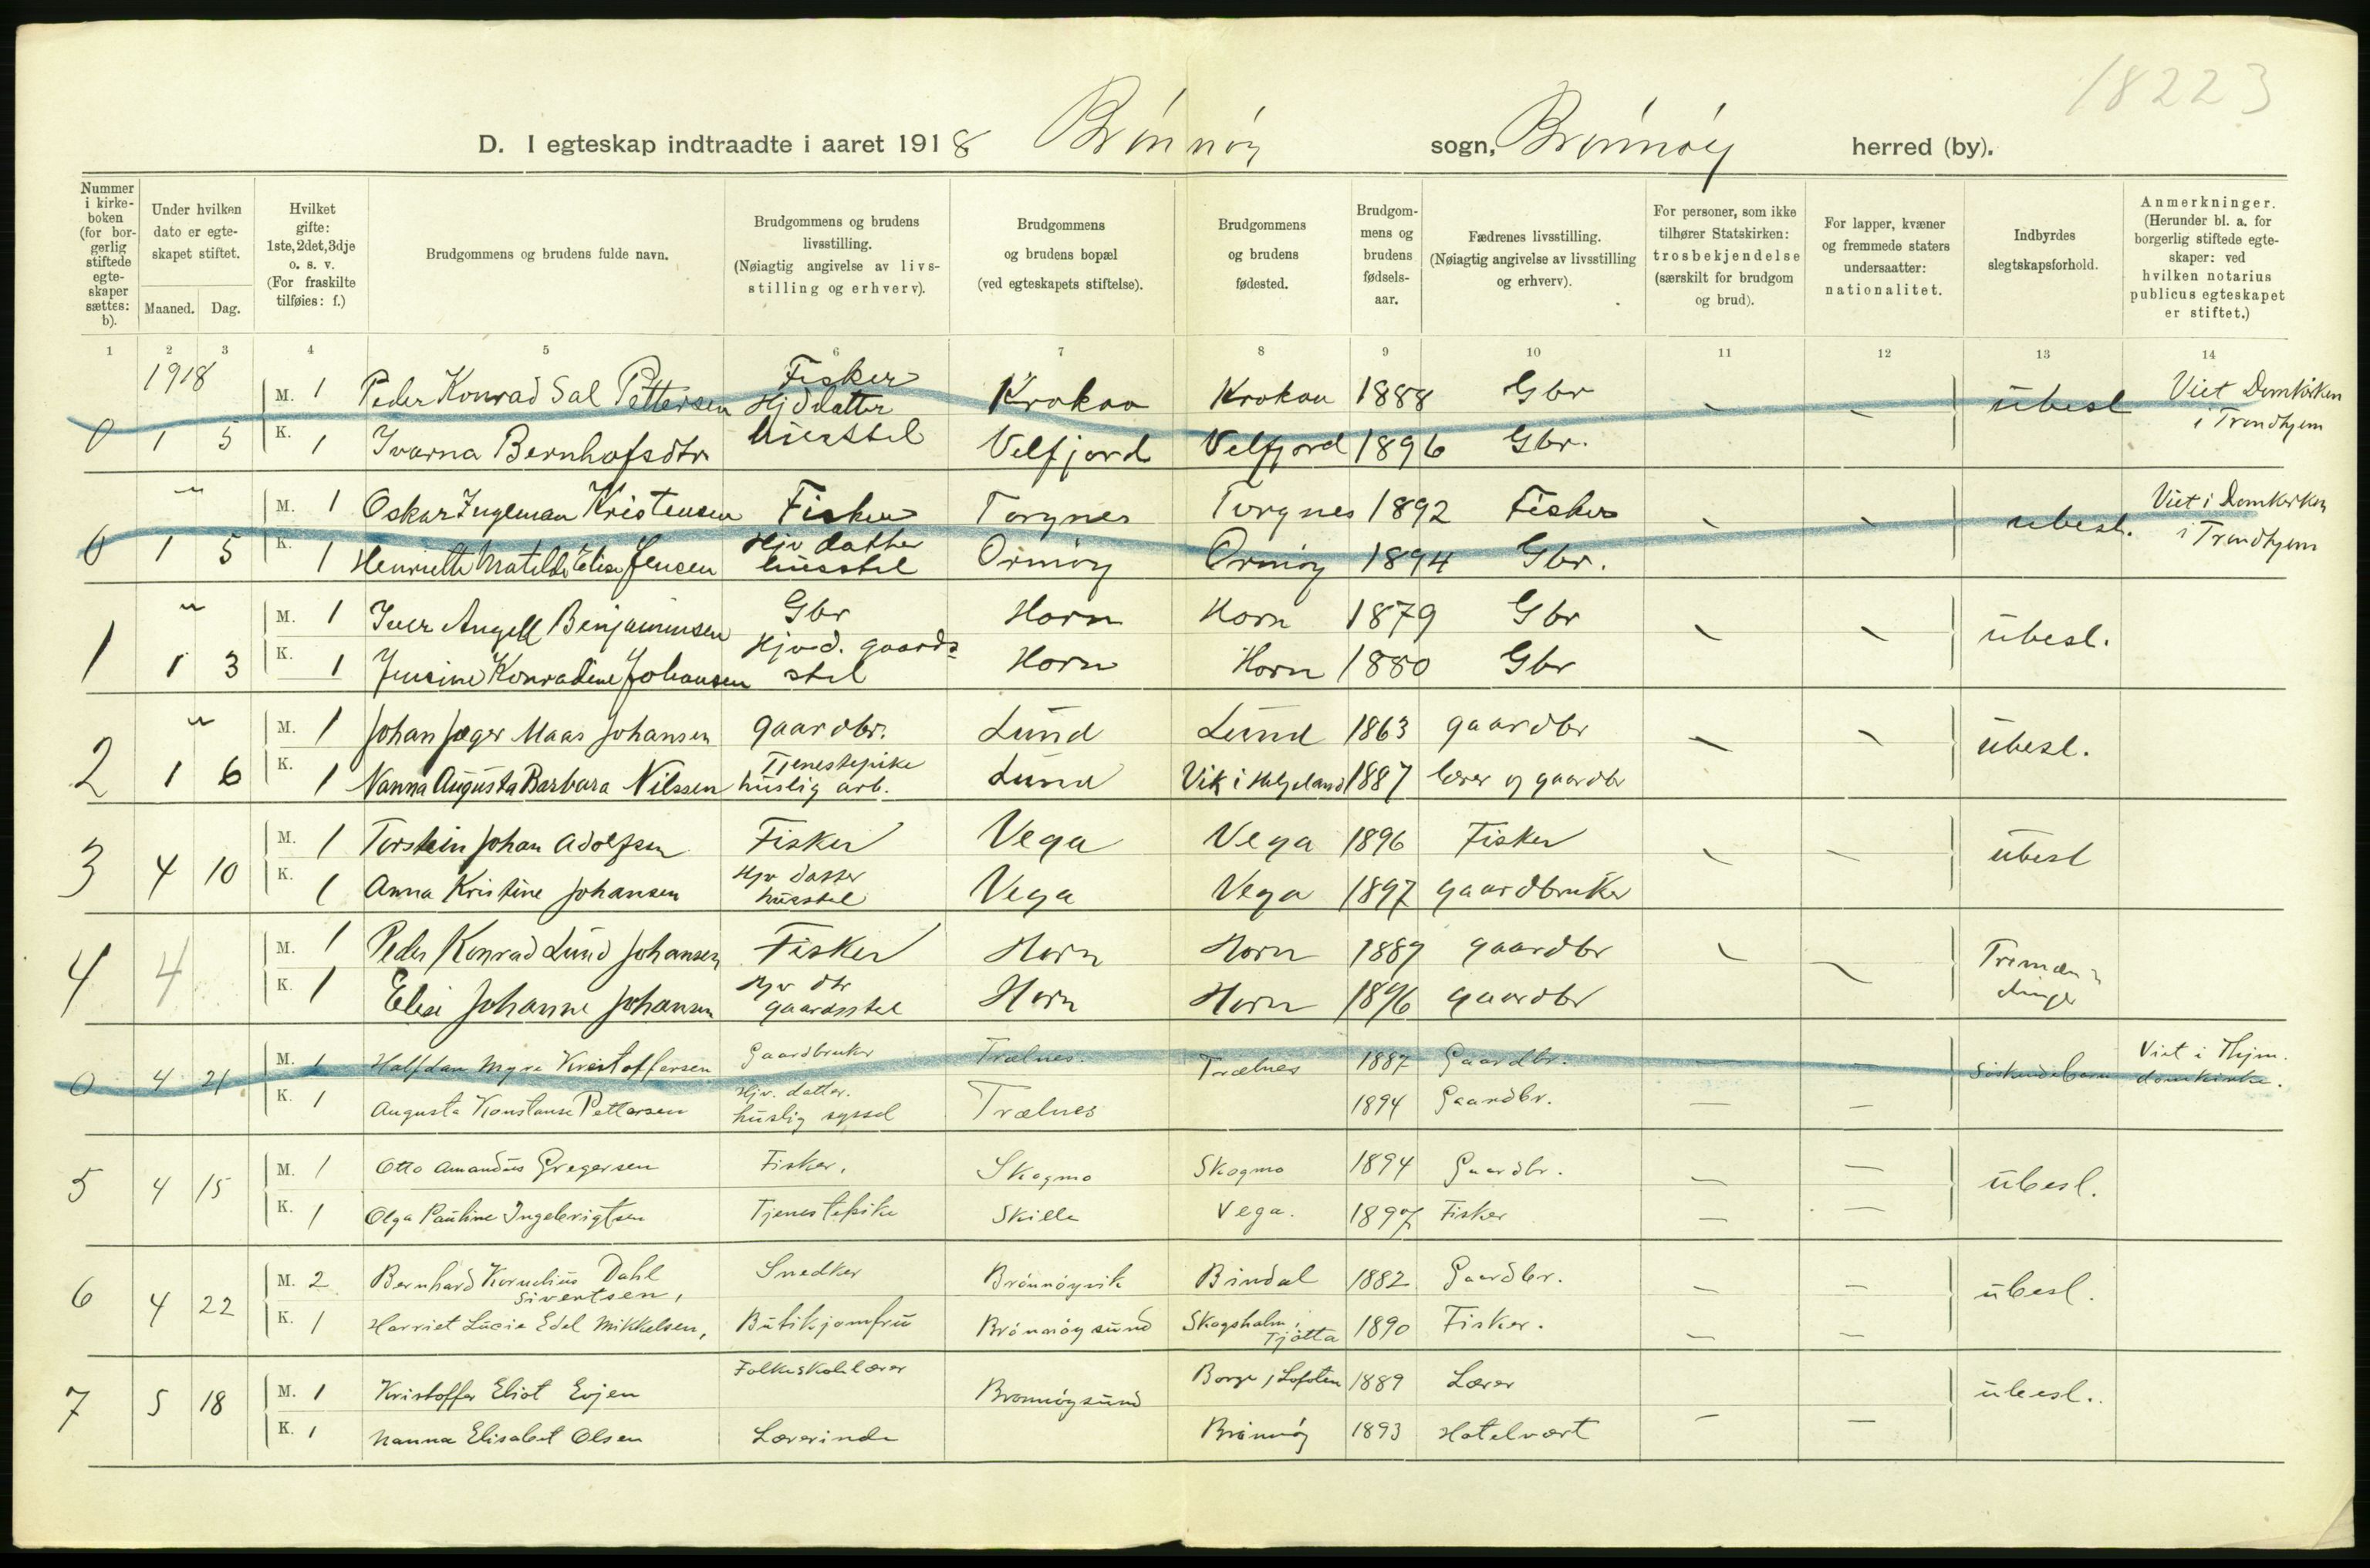 18223
D. I egteskap indtraadte i aaret 1918 Brönnöy sogn, Brönnöy herred (by).
Nummer i kirkeboken (for borgerlig stiftede egteskaper sættes: b).
Under hvilken dato er egteskapet stiftet.
Maaned. Dag.
Hvilket gifte: 1ste, 2det, 3dje o. s. v. (For fraskilte tilføies: f.)
Brudgommens og brudens fulde navn.
Brudgommens og brudens livsstilling. (Nøiagtig angivelse av livsstilling og erhverv).
Brudgommens og brudens bopæl (ved egteskapets stiftelse).
Brudgommens og brudens fødested.
Brudgommens og brudens fødselsaar.
Fædrenes livsstilling. (Nøiagtig angivelse av livsstilling og erhverv).
For personer, som ikke tilhører Statskirken: trosbekjendelse (særskilt for brudgom og brud).
For lapper, kvæner og fremmede staters undersaatter: nationalitet.
Indbyrdes slegtskapsforhold.
Anmerkninger. (Herunder bl. a. for borgerlig stiftede egteskaper: ved hvilken notarius publicus egteskapet er stiftet.)
1 2 3 4 5 6 7 8 9 10 11 12 13 14
1918
M. 1 Peder Konrad Sal Pettersen Fisker Krokaa Krokaa 1888 Gbr - - übesl Viet Domkirken i Trondhjem
0 1 5 K. 1 Ivarna Bernhofsdtr Hj datter hüsstel Velfjord Velfjord 1896 Gbr.
" M. 1 Oskar Ingleman Kristensen Fisker Torgnes Torgnes 1892 Fisker - - ubesl. Viet i Domkirken i Trondhjem
0 1 5 K. 1 Henriette Matilde Elise Jensen Hjv datter hüsstel Ormöy Ormöy 1894 Gbr.
" M. 1 Iver Angell Benjaminsen Gbr Horn Horn 1879 Gbr - - übesl.
1 1 3 K. 1 Jensine Konradine Johansen Hjvd. gaardsstel Horn Horn 1880 Gbr
" M. 1 Johan Jæger Maas Johansen gaardbr. Lünd Lünd 1863 gaardbr - - übesl.
2 1 6 K. 1 Nanna Augüsta Barbara Nilssen Tjenestepike hüslig arb. Lünd Vik i Helgeland 1887 lærer og gaardbr
M. 1 Torstein Johan Adolfsen Fisker Vega Vega 1896 Fisker - - übesl
3 4 10 K. 1 Anna Kristine Johansen Hjv datter hüsstel Vega Vega 1897 gaardbruker
M. 1 Peder Konrad Lünd Johansen Fisker Horn Horn 1887 gaardbr - - Tremændinger
4 4 K. 1 Elise Johanne Johansen Hjv dtr gaardsstel Horn Horn 1896 gaardbr
M. 1 Halfdan Myra Kristoffersen Gaardbruker Trælnes. Trælnes 1887 Gaardbr. - - Söskendebarn Viet i Thjm. domkirke.
0 4 21 K. 1 Augusta Konstanse Pettersen Hjv. datter. hüslig syssel Trælnes 1894 Gaardbr. - -
5 4 15 M. 1 Otto Amandüs Gregersen Fisker. Skogmo Skogmo 1894 Gaardbr. - - übesl.
K. 1 Olga Paüline Ingebrigtsen Tjenestepike Skille Vega. 1897 Fisker - -
6 4 22 M. 2 Bernhard Kornelius Dahl Sivertsen, Snedker Brönnöyvik Bindal 1882 Gaardbr. - - übesl.
K. 1 Harriet Lücie Edel Mikkelsen, Bütikjomfrü Brönnöysünd Skogsholm, Tjötta 1890 Fisker. - -
7 5 18 M. 1 Kristoffer Eliot Evjen Folkeskolelærer Brönnöysünd Borge, Lofoten 1889 Lærer übesl.
K. 1 Nanna Elisabet Olsen Lærerinde Brönnöy 1893 Hotelvært - -